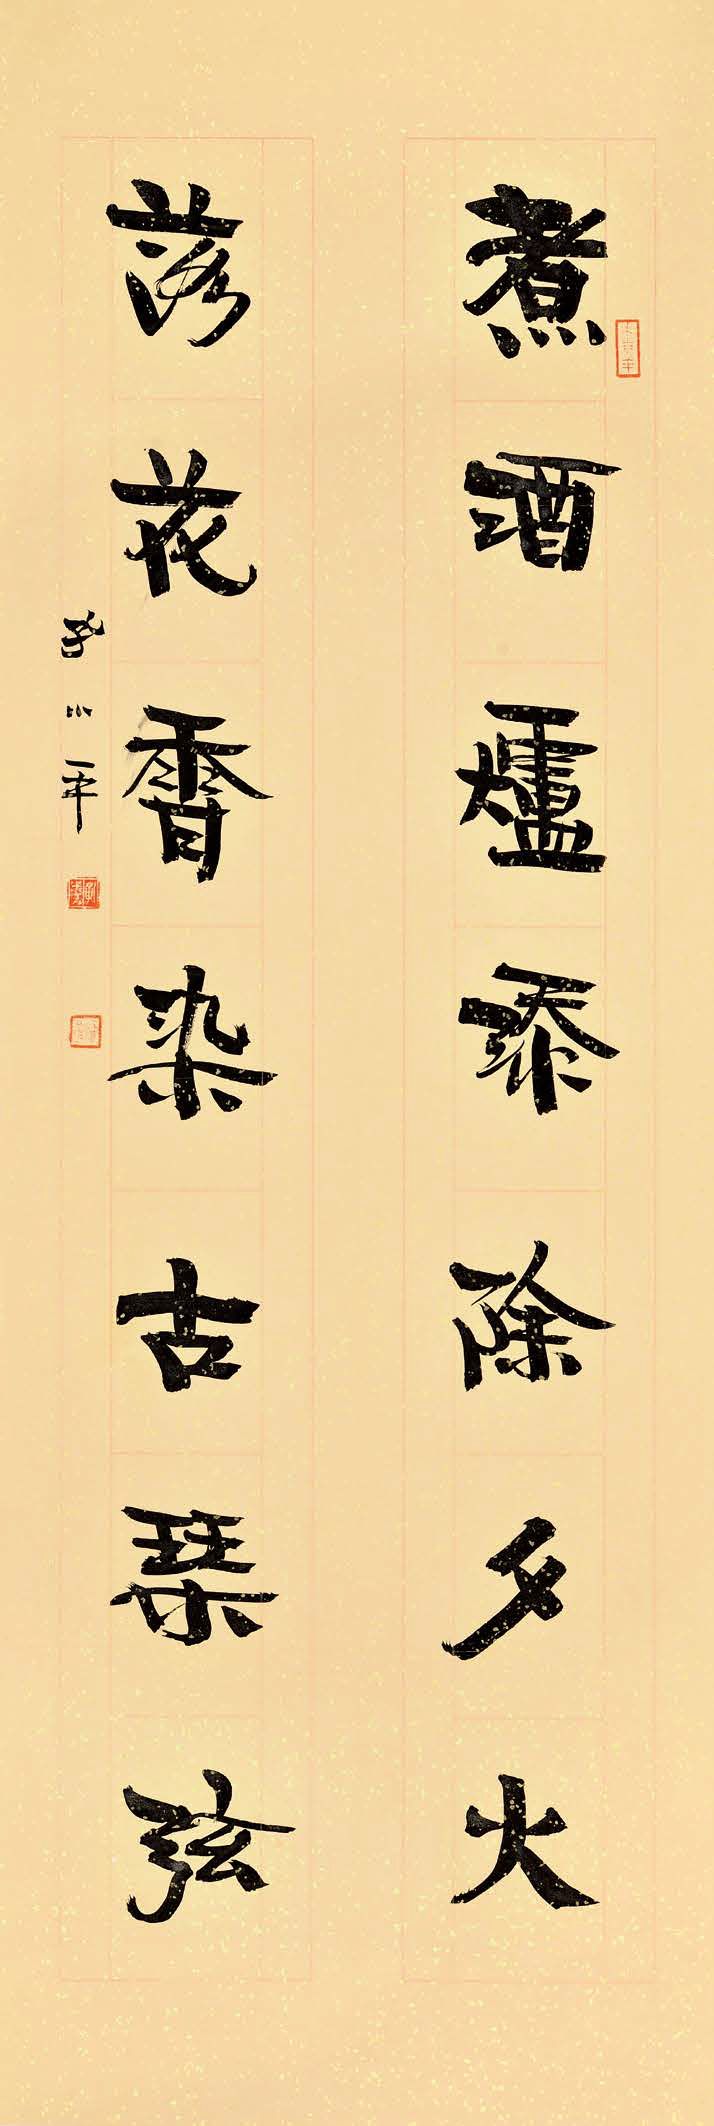 煮酒爐添除夕火
落花香染古琴弦
小平